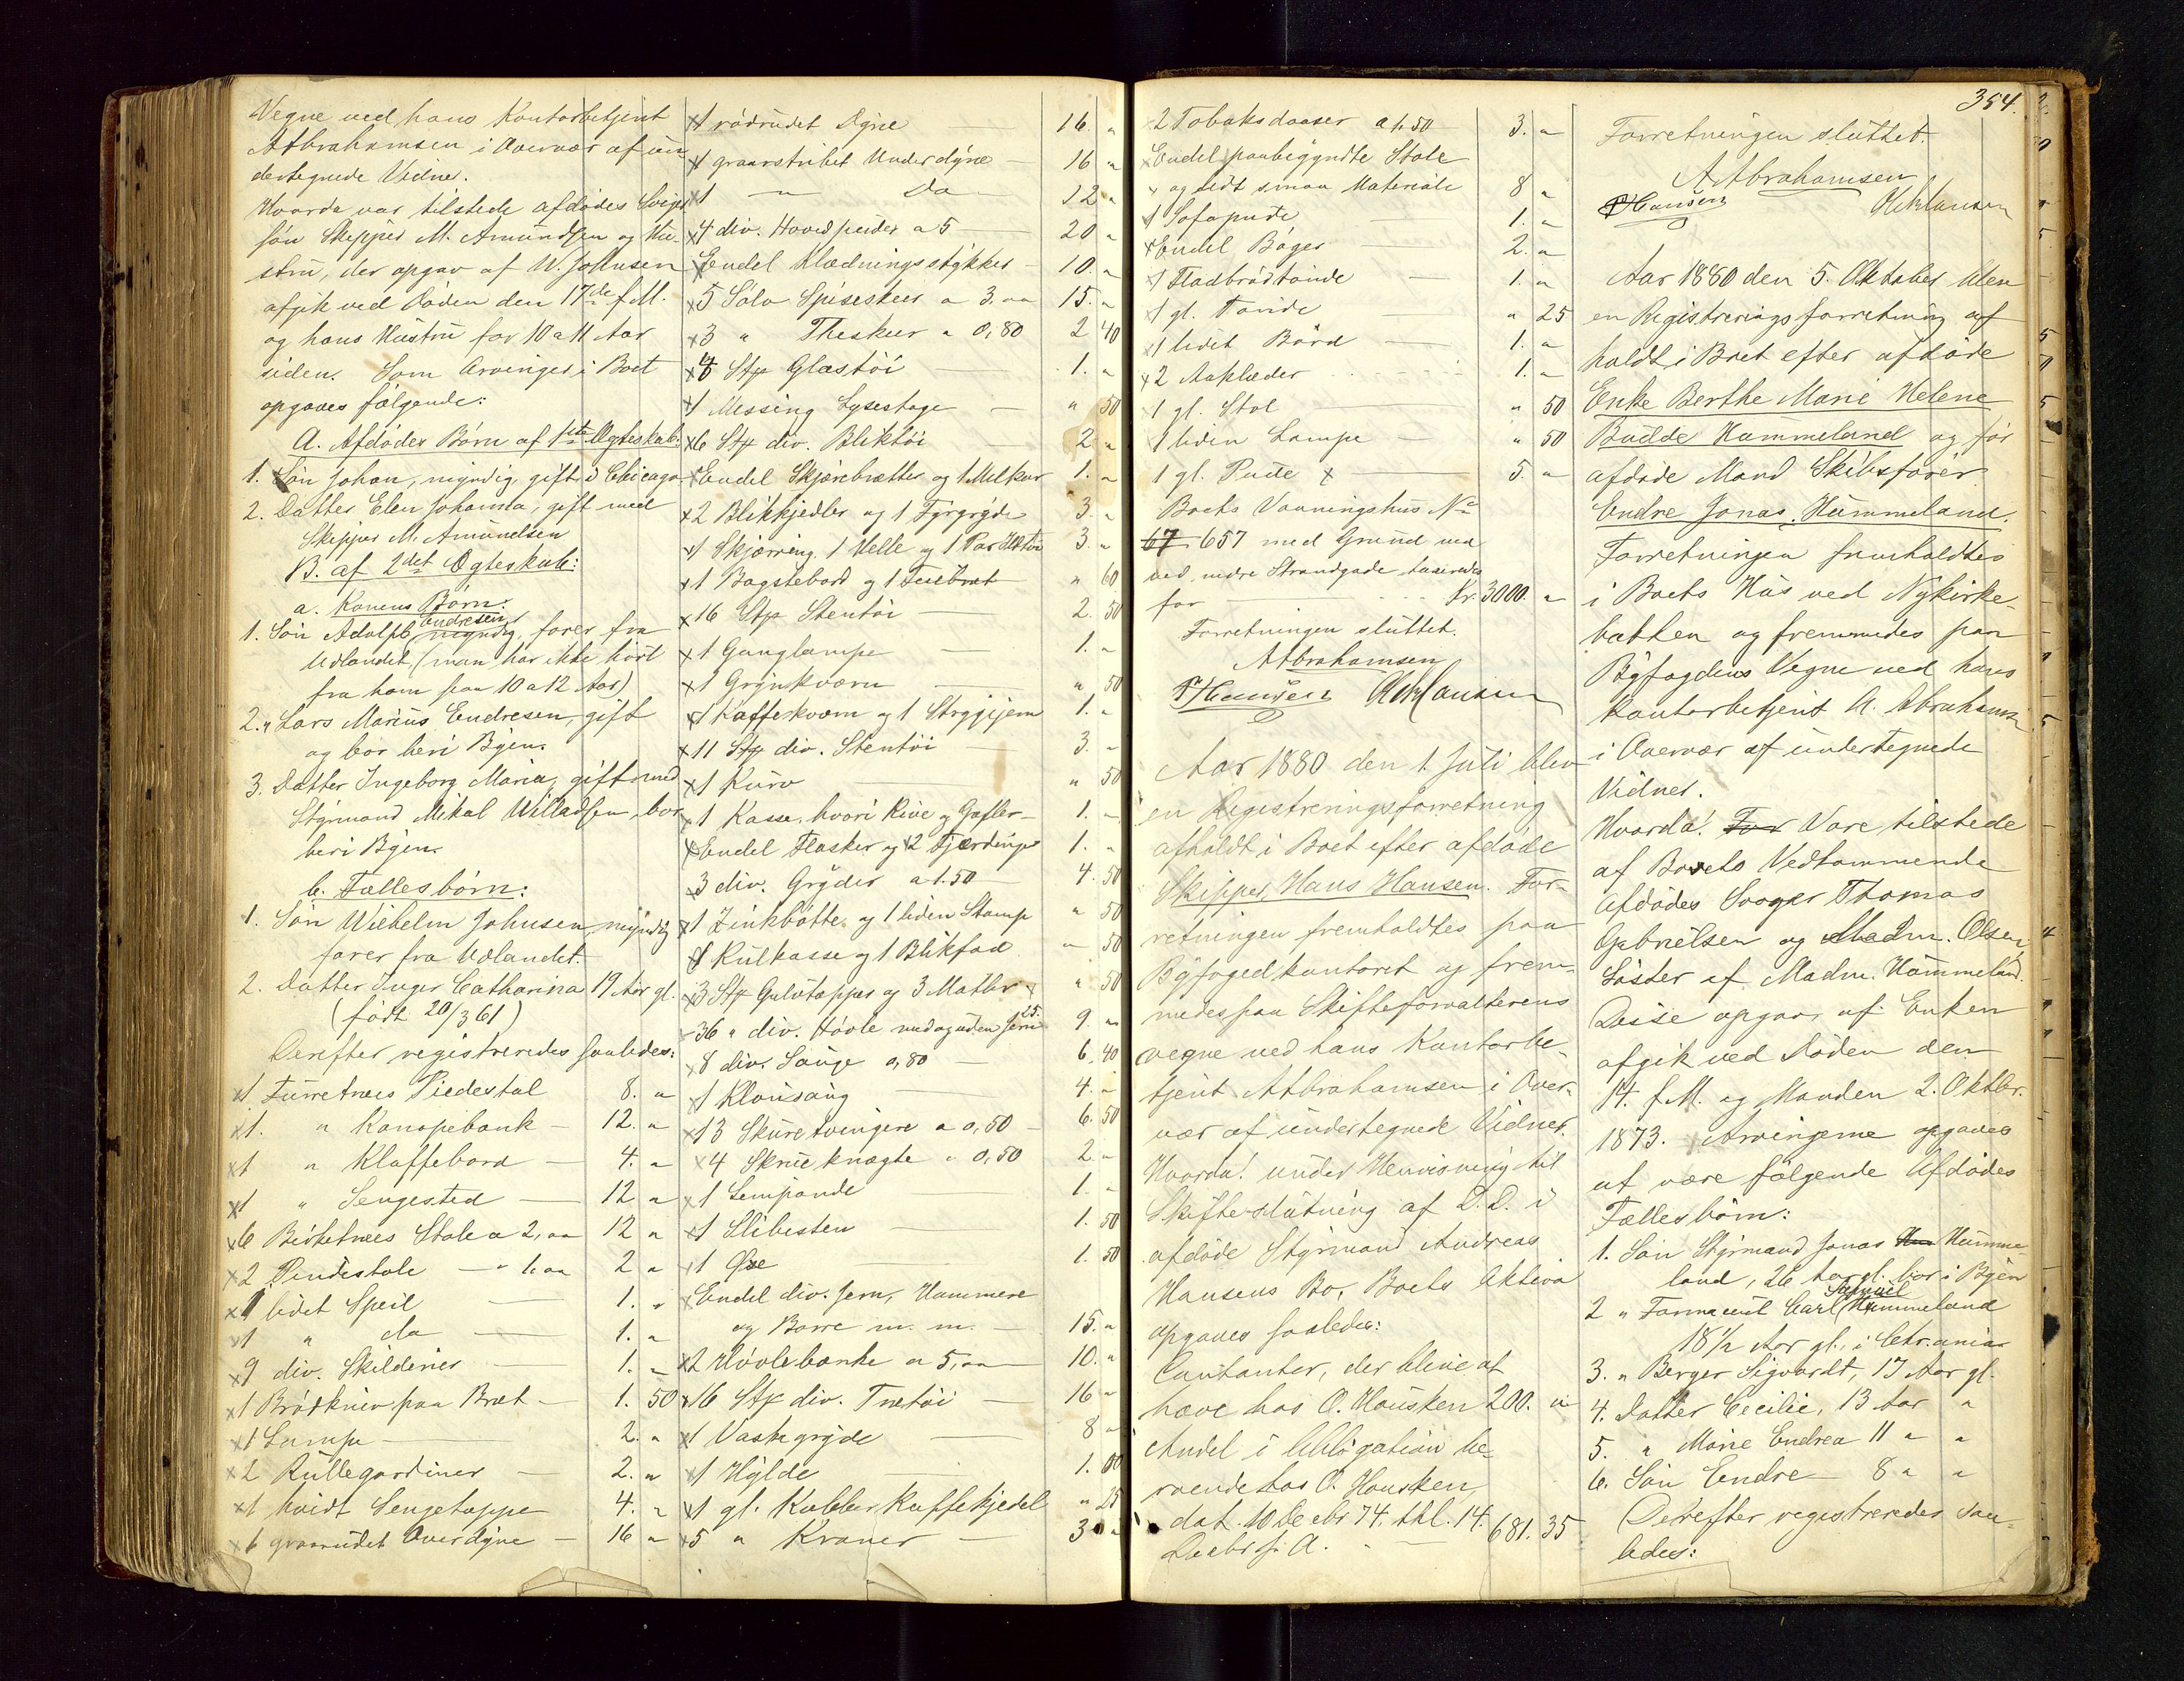 Vegne ved hans Kontorbetjent
Abrahamsen i Overvær af un-
dertegnede Vidner.
Hvorda var tilstede afdødes Sviger
søn Skipper M. Amundsen og Hu-
stru, der opgav af W. Johnsen
afgik ved Døden den 17de f.M.
og hans Hustru for 10 a 11 Aar
siden. Som Arvinger i Boet
opgaves følgende:
A. Afdødes Børn af 1ste Ægteskab.
1. Søn Johan, myndig, gift i Chicago
2. Datter Elen Johanna, gift med
Skipper M. Amundsen
B. af 2det Ægteskab:
a. Konens Børn:
1. Søn Adolph Andresen myndig, farer fra
Udlandet, (man har ikke hørt
fra ham paa 10 a 12 Aar)
2. " Lars Marius Endresen, gift
og bor heri Byen.
3. Datter Ingeborg Maria, gift med
Styrmand Mikal Willadsen, bor
heri Byen.
b. Fællesbørn:
1. Søn Wilhelm Johnsen, myndig
farer fra Udlandet.
2. Datter Inger Catharina 19 Aar gl.
(født 20/3 61)
Derefter registreredes saaledes:
x1 Furretræes Piedestal 8. "
x1. " Kanapebænk - 12. "
x1 " Klaffebord - 4. "
x1 " Sengested - 12 "
x6 Birketræes Stole a 2, " 12 "
x2 Pindestole - " 1. " 2 "
x1 lidet Speil - 1. "
x1 " do - 1. "
x9 div. Skilderier - 1. "
x1 Brødkniv paa Bræt - 1. 50
x1 Lampe - 2. "
x2 Rullegardiner - 2. "
x1 hvidt Sengetæppe 4. "
x6 graarudet Overdyne - 16 "
x1 rødrudet Dyne 16. "
x1 graastribet Underdyne - 16 "
x1 " Do 12 "
x4 div. Hovedpuder a 5 20 "
xEndel Klædningsstykker - 10. "
x5 Sølv Spiseskeer a 3. " 15. "
x3 " Theskeer " 0,80 2 40
x8 Stk Glastøi - 1. "
x1 Messing Lysestage - " 50
x6 Stk div. Bliktøi - 2 "
xEndel Skjærebrætter og 1 Melkar 1. "
x2 Blikkjedler og 1 Fyrgryde 3. "
x1 Skjæreing 1 Helle og 1 Par 3. "
x1 Bagstebord og 1 Tællebræt " 60
x16 Stk Stentøi 2. 50
x1 Ganglampe - 1. "
x1 Grynkværn - " 50
x1 Kaffekværn og 1 Strygjern 1. "
x11 Stk div. Stentøi 3. "
x1 Kurv - " 50
x1 Kasse, hvori Knive og Gafler - 1. "
xEndel Flasker og x2 Fjærdinge 1. "
x3 div. Gryder a 1.50 4. 50
x1 Zinkbøtte og 1 liden Stamp " 50
x1 Kulkasse og 1 Blikfad " 50
x3 Stk Gulvtæpper og 3 Matter " 50
x36 " div. Høvle med og uden Jern 25. 9. "
x8 div. Sauge 0,80 - 6. 40
x1 Klousaug 4. "
x13 Skruetvingere a 0,50 - 6. 50
x4 Skrueknægte " 0,50 2. "
x1 Limpande 1. "
x1 Slibesten - 1. 50
x1 Øxe 1. 50
xEndel div. Jern, Hammere
og Borre m. m. - 15. "
x2 Høvlebænke a 5, " 10. "
x16 Stk div. Trætøi - 16 "
x1 Vaskegryde 8 "
x1 Hylde 1. 00
x1 gl. Kobber Kaffekjedel " 25
x5 " Kraner - 3 "
354.
2 Tobaksdaaser a 1,50 3. "
xEndel paabegyndte Stole
" og lidt smaa Materiale 8 "
x1 Sofapude 1. "
xEndel Bøger - 2. "
x1 Fladbrødtønde - 1. "
x1 gl. Tønde " 25
x1 lidet Bord - 1. "
x2 Aaklæder 1. "
1 gl. Stol " 50
1 liden Lampe - " 50
1 gl. Pude x 5. "
Boets Vaaningshus No
67 657 med Grund ved
ved nedre Strandgade taxeredes
for Kr. 3000. "
Forretningen sluttet.
AAbrahamsen
P Hansen
Aar 1880 den 1. Juli blev
en Registreringsforretning
afholdt i Boet efter afdøde
Skipper Hans Hansen. For-
retningen fremholdtes paa
Byfogedkontoret og frem-
medes paa Skifteforvalterens
vegne ved hans Kontorbe-
tjent AAbrahamsen i Over-
vær af undertegnede Vidner.
Hvorda! under Henvisning til
Skifteslutning af D.D. i
afdøde Styrmand Andreas
Hansens Bo, Boets Aktiva
opgaves saaledes:
Contanter, der blive at
hæve hos O. Housken 200. "
Andel i Obligation be-
roende hos O. Housken,
dat. 10 Decbr 74. thl. 14.
Decbr s. A. - 681. 35
Forretningen sluttet.
AAbrahamsen
P Hansen
Aar 1880 den 5. Oktober blev
en Registreringsforretning af
holdt i Boet efter afdøde
Enke Berthe Marie Helene
Budde Hummeland og før
afdøde Mand Skibsfører
Endre Jonas Hummeland.
Forretningen fremholdtes
i Boets Hus ved Nykirke-
bakken og fremmedes paa
Byfogdens Vegne ved hans
Kontorbetjent A. Abrahamsen
i Overvær af undertegnede
Vidner.
Hvorda! For Vare tilstede
af Boets Vedkommende
Afdødes Svoger Thomas
Gabrielsen og Madm. Olsen,
Søster af Madm. Hummeland.
Disse opgav, at Enken
afgik ved Døden den
14. f. M. og Manden 2. Oktbr.
1873. Arvingerne opgaves
at være følgende Afdødes
Fællesbørn:
1. Søn Styrmand Jonas Hum Humme-
land, 26 Aar gl. bor i Byen
2 " Farmaceut Carl Samuel Hummeland
18 1/2 Aar gl., i Chr.ania
3. " Berger Sigvardt, 17 Aar gl.
4. Datter Cecilie, 13 Aar "
5. " Marie Endrea 11 " "
6. Søn Endre - 8 " "
Derefter registreredes saa-
ledes: